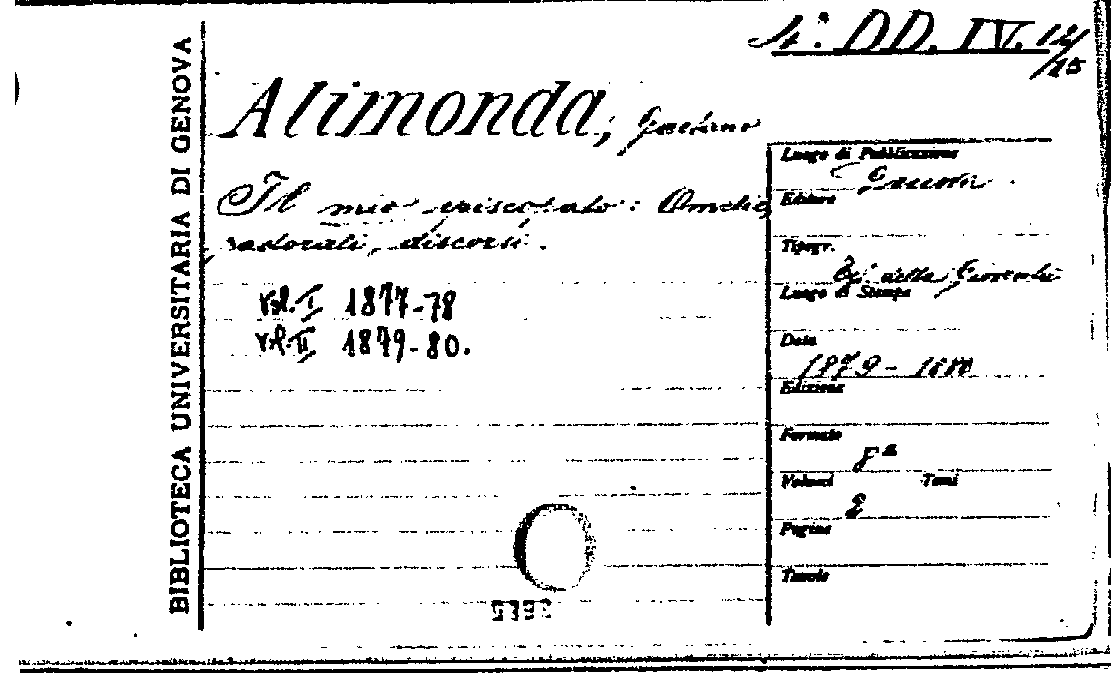 4.° DD. IV. 12/15
BIBLIOTECA UNIVERSITARIA DI GENOVA
Alimonda, Gaetano
Il mio episcopato: Omelie,
pastorali, discorsi.
vol. I 1877-78
vol. II 1879-80.
Luogo di Pubblicazione
Genova
Editore
Tipogr.
Tip. della Gioventù
Luogo di Stampa
Data
1879 - 1880
Edizione
Formato
8°
Volumi Tomi
2
Pagine
Tavole